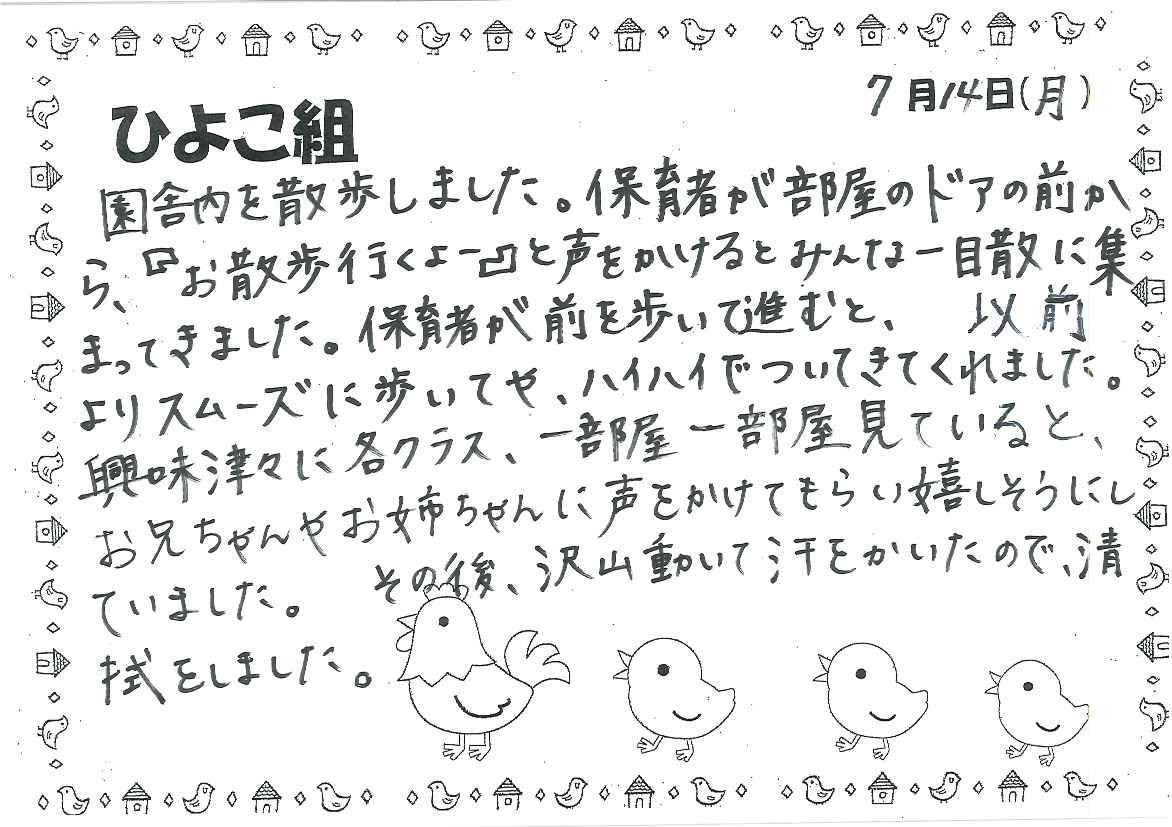 7月14日(月)
ひよこ組
園舎内を散歩しました。保育者が部屋のドアの前か
ら、『お散歩行くよー』と声をかけるとみんな一目散に集
まってきました。保育者が前を歩いて進むと、 以前
よりスムーズに歩いてや、ハイハイでついてきてくれました。
興味津々に各クラス、一部屋一部屋見ていると、
お兄ちゃんやお姉ちゃんに声をかけてもらい嬉しそうにし
ていました。 その後、沢山動いて汗をかいたので、清
拭をしました。